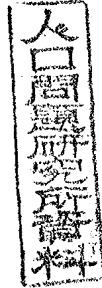 人口問題研究所資料